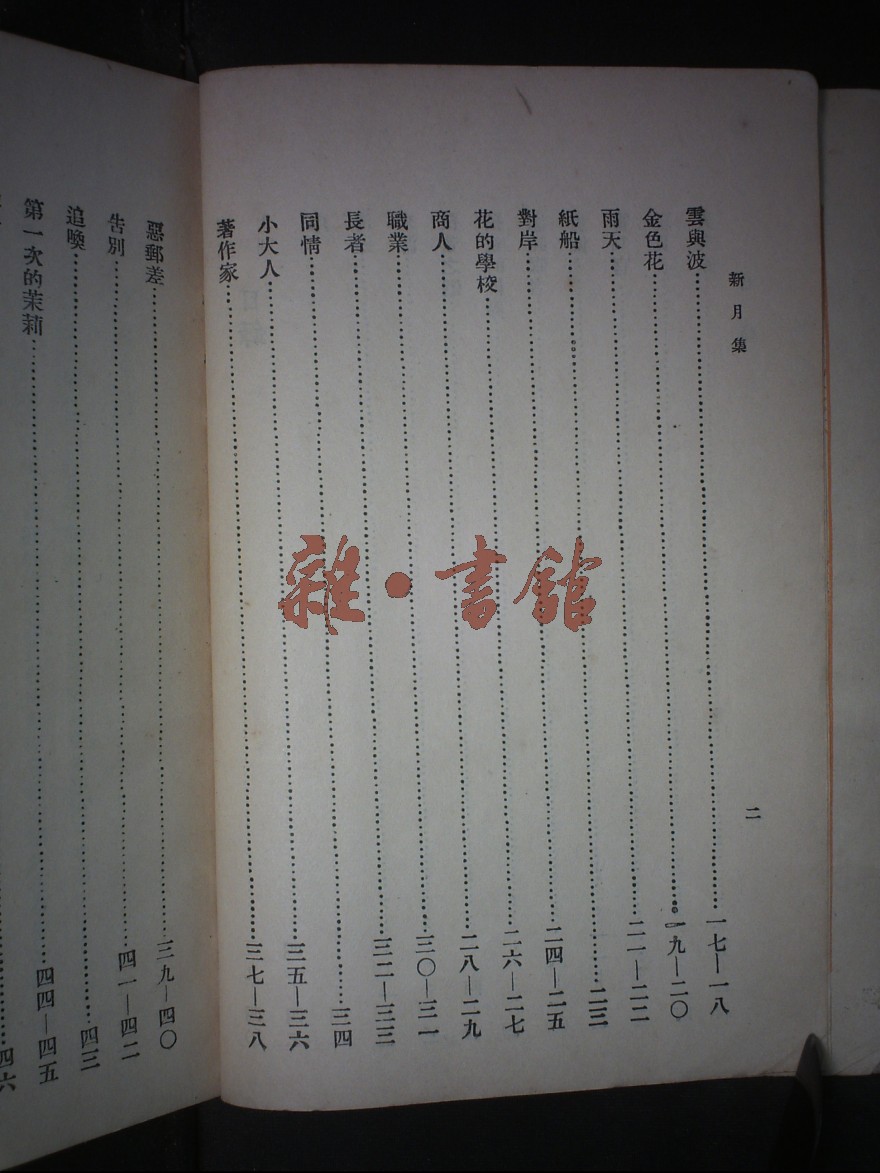 新月集
二
雲與波……一七—一八
金色花……一九—二〇
雨天……二一—二二
紙船……二三
對岸……二四—二五
花的學校……二六—二七
商人……二八—二九
職業……三〇—三一
長者……三二—三三
同情……三四
小大人……三五—三六
著作家……三七—三八
惡郵差……三九—四〇
告別……四一—四二
追喚……四三
第一次的茉莉……四四—四五
……四六
雜•書館